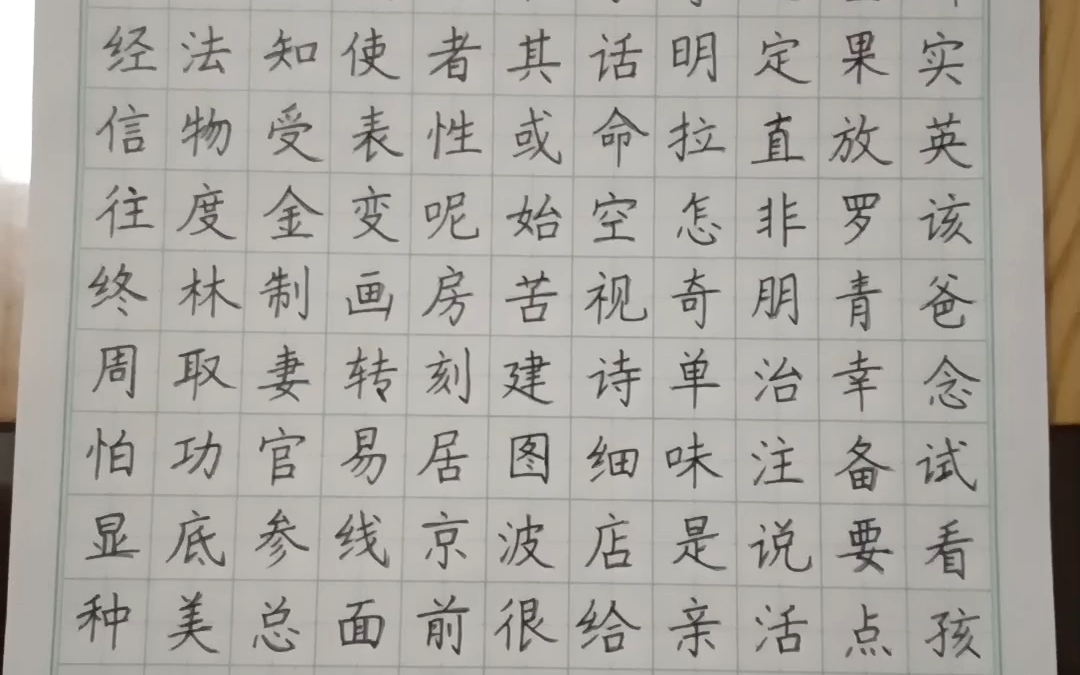 经法知使者其话明定果实
信物受表性或命拉直放英
往度金变呢始空怎非罗该
终林制画房苦视奇朋青爸
周取妻转刻建诗单治幸念
怕功官易居图细味注备试
显底参线京波店是说要看
种美总面前很给亲活点孩